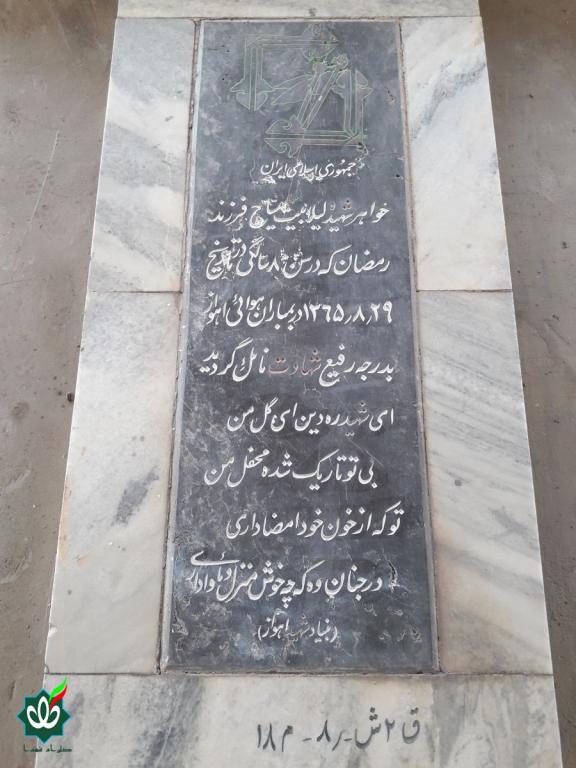 جمهوری اسلامی ایران
خواهر شهید لیلا بیت میاح فرزند
رمضان که در سن ۸ سالگی در تاریخ
۱۳۶۵٫۸٫۲۹ در بمباران هوائی اهواز
بدرجه رفیع شهادت نائل گردید
ای شهید ره دین ای گل من
بی تو تاریک شده محفل من
تو که از خون خود امضا داری
در جنان وه که چه خوش منزل و ماوا داری
(بنیاد شهید اهواز)
ق ۲ ش - ر ۸ - م ۱۸